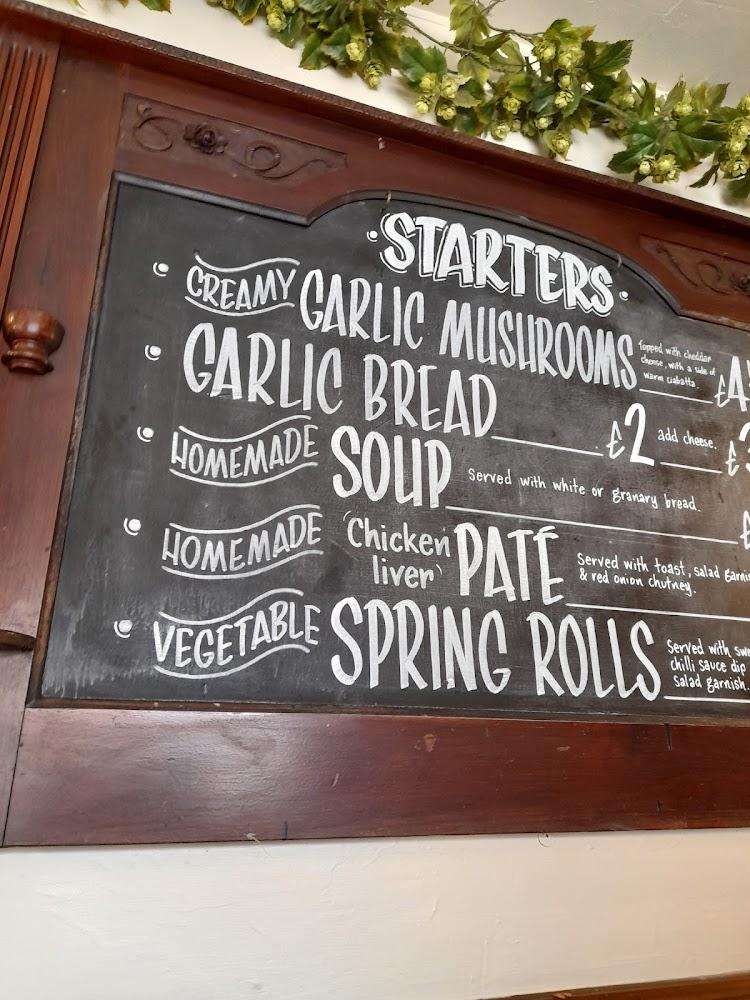 STARTERS
CREAMY GARLIC MUSHROOMS Topped with cheddar
cheese, with a side of
warm ciabatta. £4
GARLIC BREAD £2 add cheese. £
HOMEMADE SOUP Served with white or granary bread. £
HOMEMADE 'Chicken
liver' PATÉ Served with toast, salad
& red onion chutney.
VEGETABLE SPRING ROLLS Served with
chilli sauce dip
salad garnish